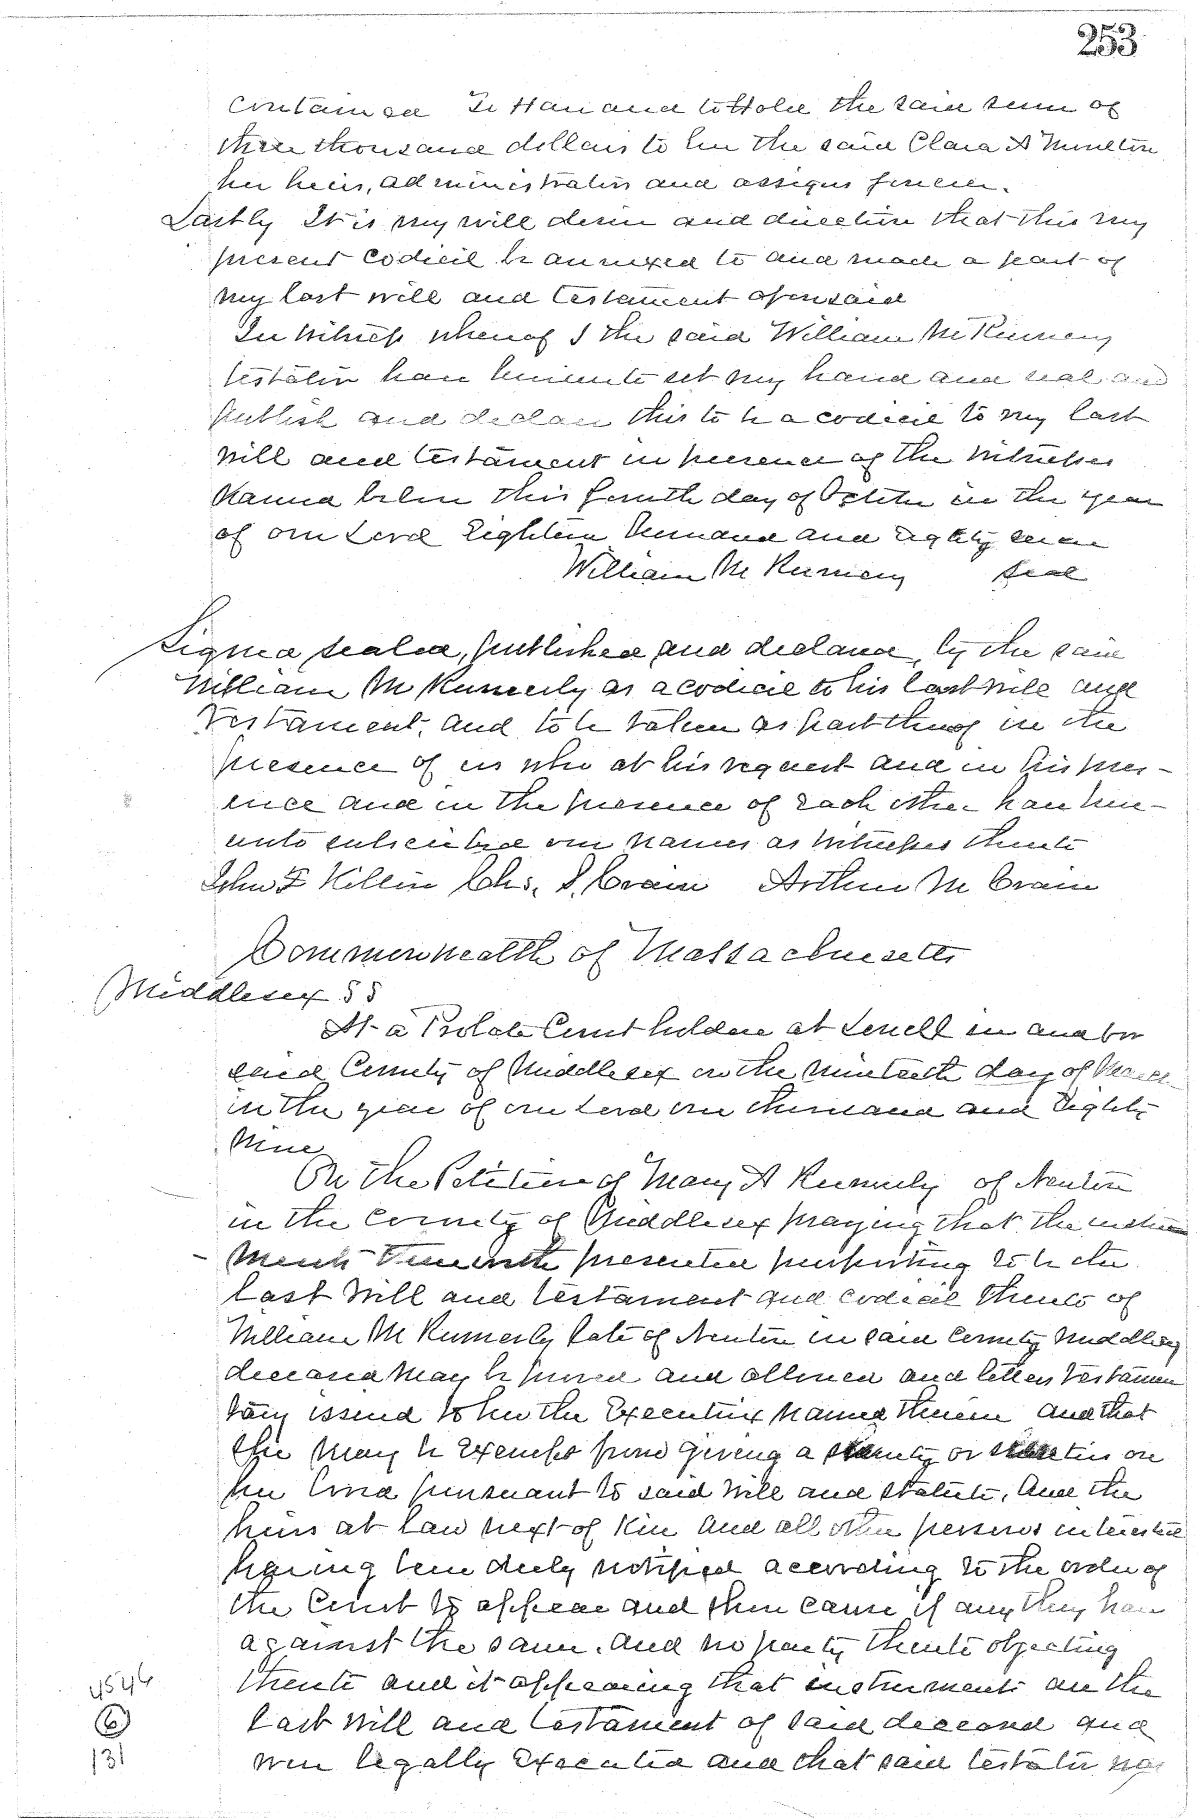 253
contained To Have and to Hold the said sum of
three thousand dollars to her the said Clara A Moulton
her heirs, administrators and assigns forever.
Lastly It is my will desire and direction that this my
present codicil be annexed to and made a part of
my last will and testament aforesaid
In Witness whereof I the said William M Kumerly
testator have hereunto set my hand and seal and
publish and declare this to be a codicil to my last
will and testament in presence of the witnesses
named below this fourth day of October in the year
of our Lord Eighteen thousand and Eighty seven
William M Kumerly seal
Signed sealed, published and declared, by the said
William M Kumerly as a codicil to his last will and
testament, and to be taken as part thereof in the
presence of us who at his request and in his pres-
ence and in the presence of each other have here-
unto subscribed our names as witnesses thereto
John F Killin Chs. S. Crain Arthur M Crain
Commonwealth of Massachusetts
Middlesex SS
At a Probate Court holden at Lowell in and for
said County of Middlesex on the nineteenth day of March
in the year of our Lord one thousand and Eighty
Nine
On the Petition of Mary A Kumerly of Newton
in the County of Middlesex praying that the instru
ments therewith presented purporting to be the
last will and testament and codicil thereto of
William M Kumerly late of Newton in said County Middlesex
deceased may be proved and allowed and letters testamen
tary issued to her the Executrix named therein and that
she may be exempt from giving a surety or sureties on
her bond pursuant to said will and statute. And the
heirs at law next of kin and all other persons interested
having been duly notified according to the order of
the Court to appear and show cause if any they have
against the same. And no party thereto objecting
thereto and it appearing that instruments are the
last will and testament of said deceased and
were legally executed and that said testator was
4546
6
131